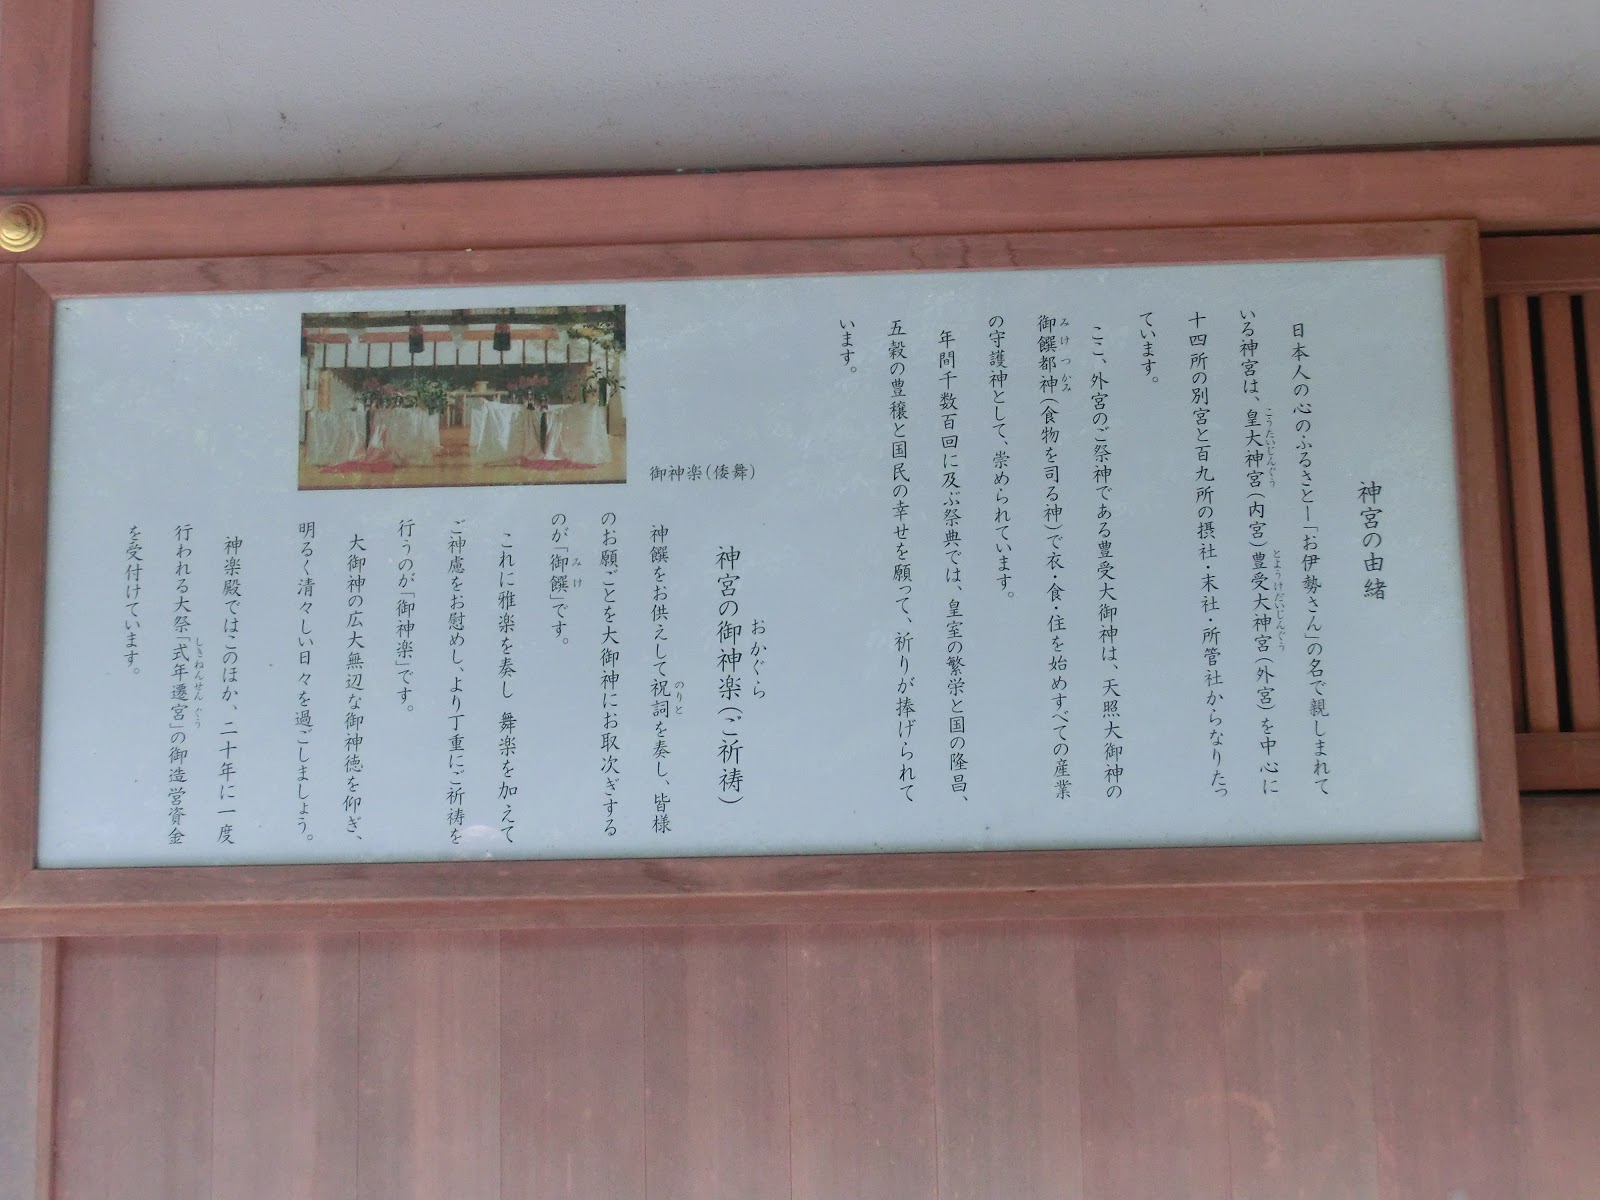 神宮の由緒
日本人の心のふるさと―「お伊勢さん」の名で親しまれて
いる神宮は、皇大神宮(内宮)豊受大神宮(外宮)を中心に
こうたいじんぐう
とようけだいじんぐう
十四所の別宮と百九所の摂社・末社・所管社からなりたっ
ています。
ここ、外宮のご祭神である豊受大御神は、天照大御神の
御饌都神(食物を司る神)で衣・食・住を始めすべての産業
みけつかみ
の守護神として、崇められています。
年間千数百回に及ぶ祭典では、皇室の繁栄と国の隆昌、
五穀の豊穣と国民の幸せを願って、祈りが捧げられて
います。
神宮の御神楽(ご祈祷)
おかぐら
神饌をお供えして祝詞を奏し、皆様
のりと
のお願ごとを大御神にお取次ぎする
のが「御饌」です。
みけ
これに雅楽を奏し 舞楽を加えて
ご神慮をお慰めし、より丁重にご祈祷を
行うのが「御神楽」です。
大御神の広大無辺な御神徳を仰ぎ、
明るく清々しい日々を過ごしましょう。
神楽殿ではこのほか、二十年に一度
行われる大祭「式年遷宮」の御造営資金
しきねんせんぐう
を受付けています。
御神楽(倭舞)